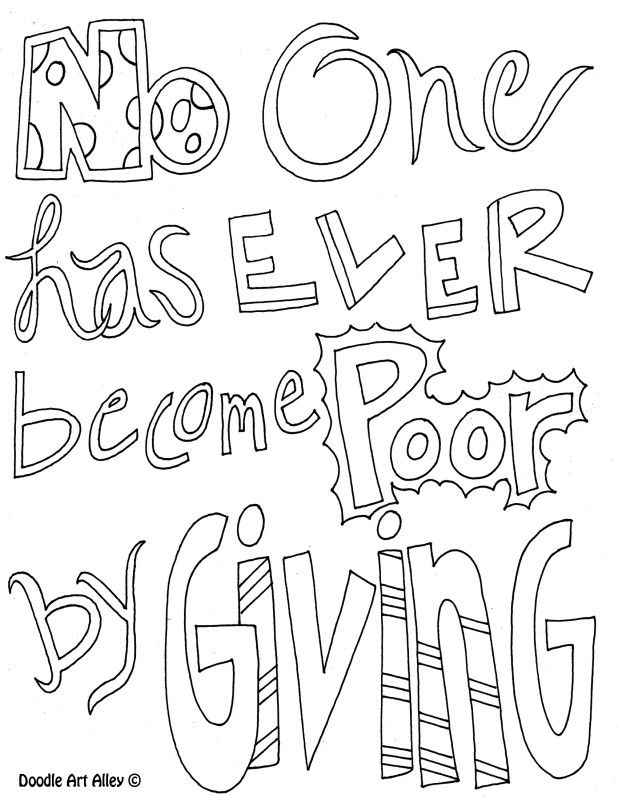 No One
has EVER
become Poor
by GiViNG
Doodle Art Alley ©